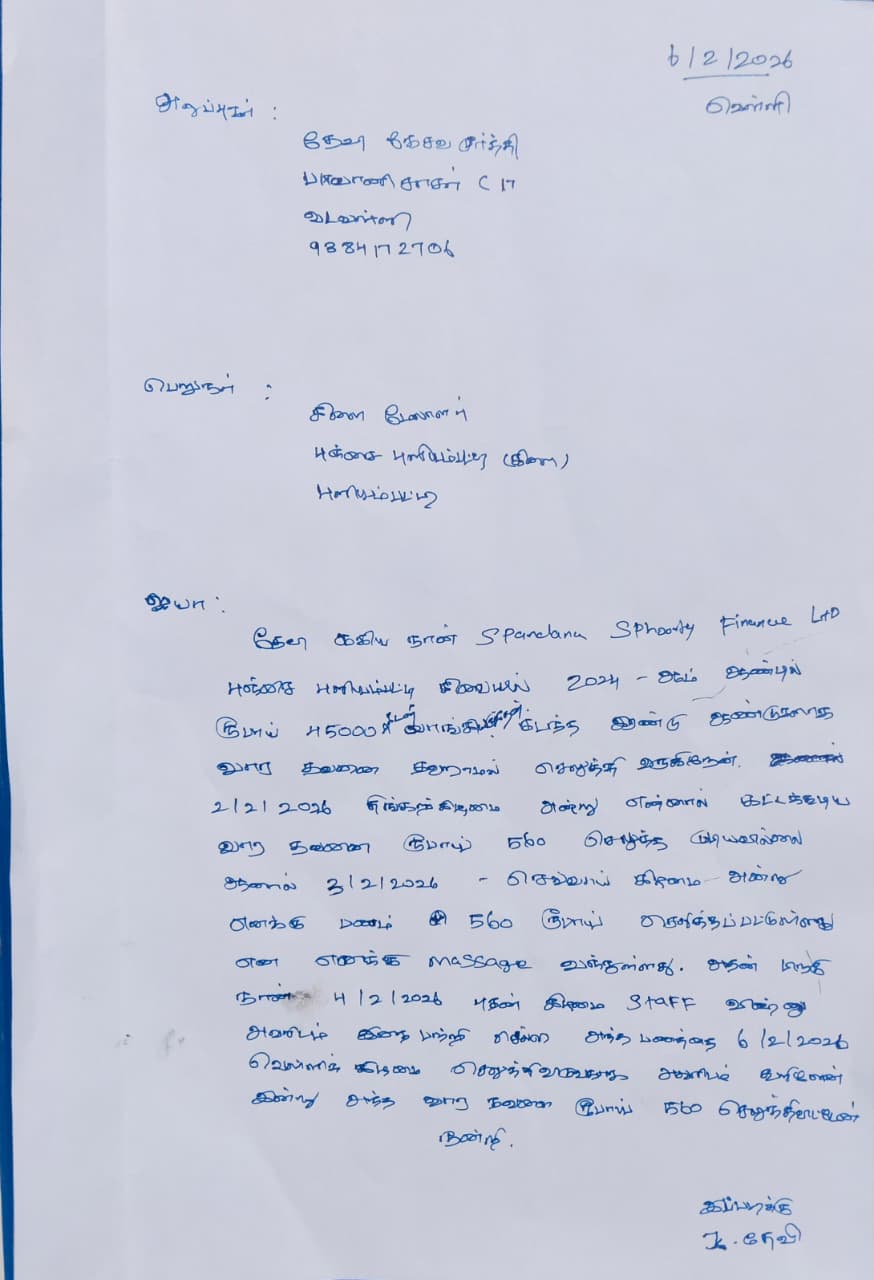 6/2/2026
வெள்ளி
அனுப்புநர் :
தேவி கேசவ மூர்த்தி
பவானி சாகர் C 17
வடவள்ளி
9384172706
பெறுநர் :
கிளை மேலாளர்
புஞ்சை புளியம்பட்டி (கிளை)
புளியம்பட்டி
ஐயா :
தேவி ஆகிய நான் Spandana Sphoorty Finance LTD
புஞ்சை புளியம்பட்டி கிளையில் 2024 - ஆம் ஆண்டில்
ரூபாய் 45000 கடன் வாங்கி கடந்த இரண்டு ஆண்டுகளாக
வார தவணை தவறாமல் செலுத்தி வருகிறேன்.
2/2/2026 திங்கள்கிழமை அன்று என்னால் கட்டக்கூடிய
வார தவணை ரூபாய் 560 செலுத்த முடியவில்லை
ஆதனால் 3/2/2026 - செவ்வாய் கிழமை அன்று
எனக்கு பணம் 560 ரூபாய் செலுத்தப்பட்டுள்ளது
என எனக்கு massage வந்துள்ளது. அதன் பிறகு
நான் 4/2/2026 புதன் கிழமை Staff
அவரிடம் இதை பற்றி சொல்ல அந்த பணத்தை 6/2/2026
வெள்ளிக் கிழமை செலுத்திவிடுவதாக அவரிடம் கூறினேன்
இன்று அந்த வார தவணை ரூபாய் 560 செலுத்திவிட்டேன்
நன்றி.
இப்படிக்கு
K. தேவி